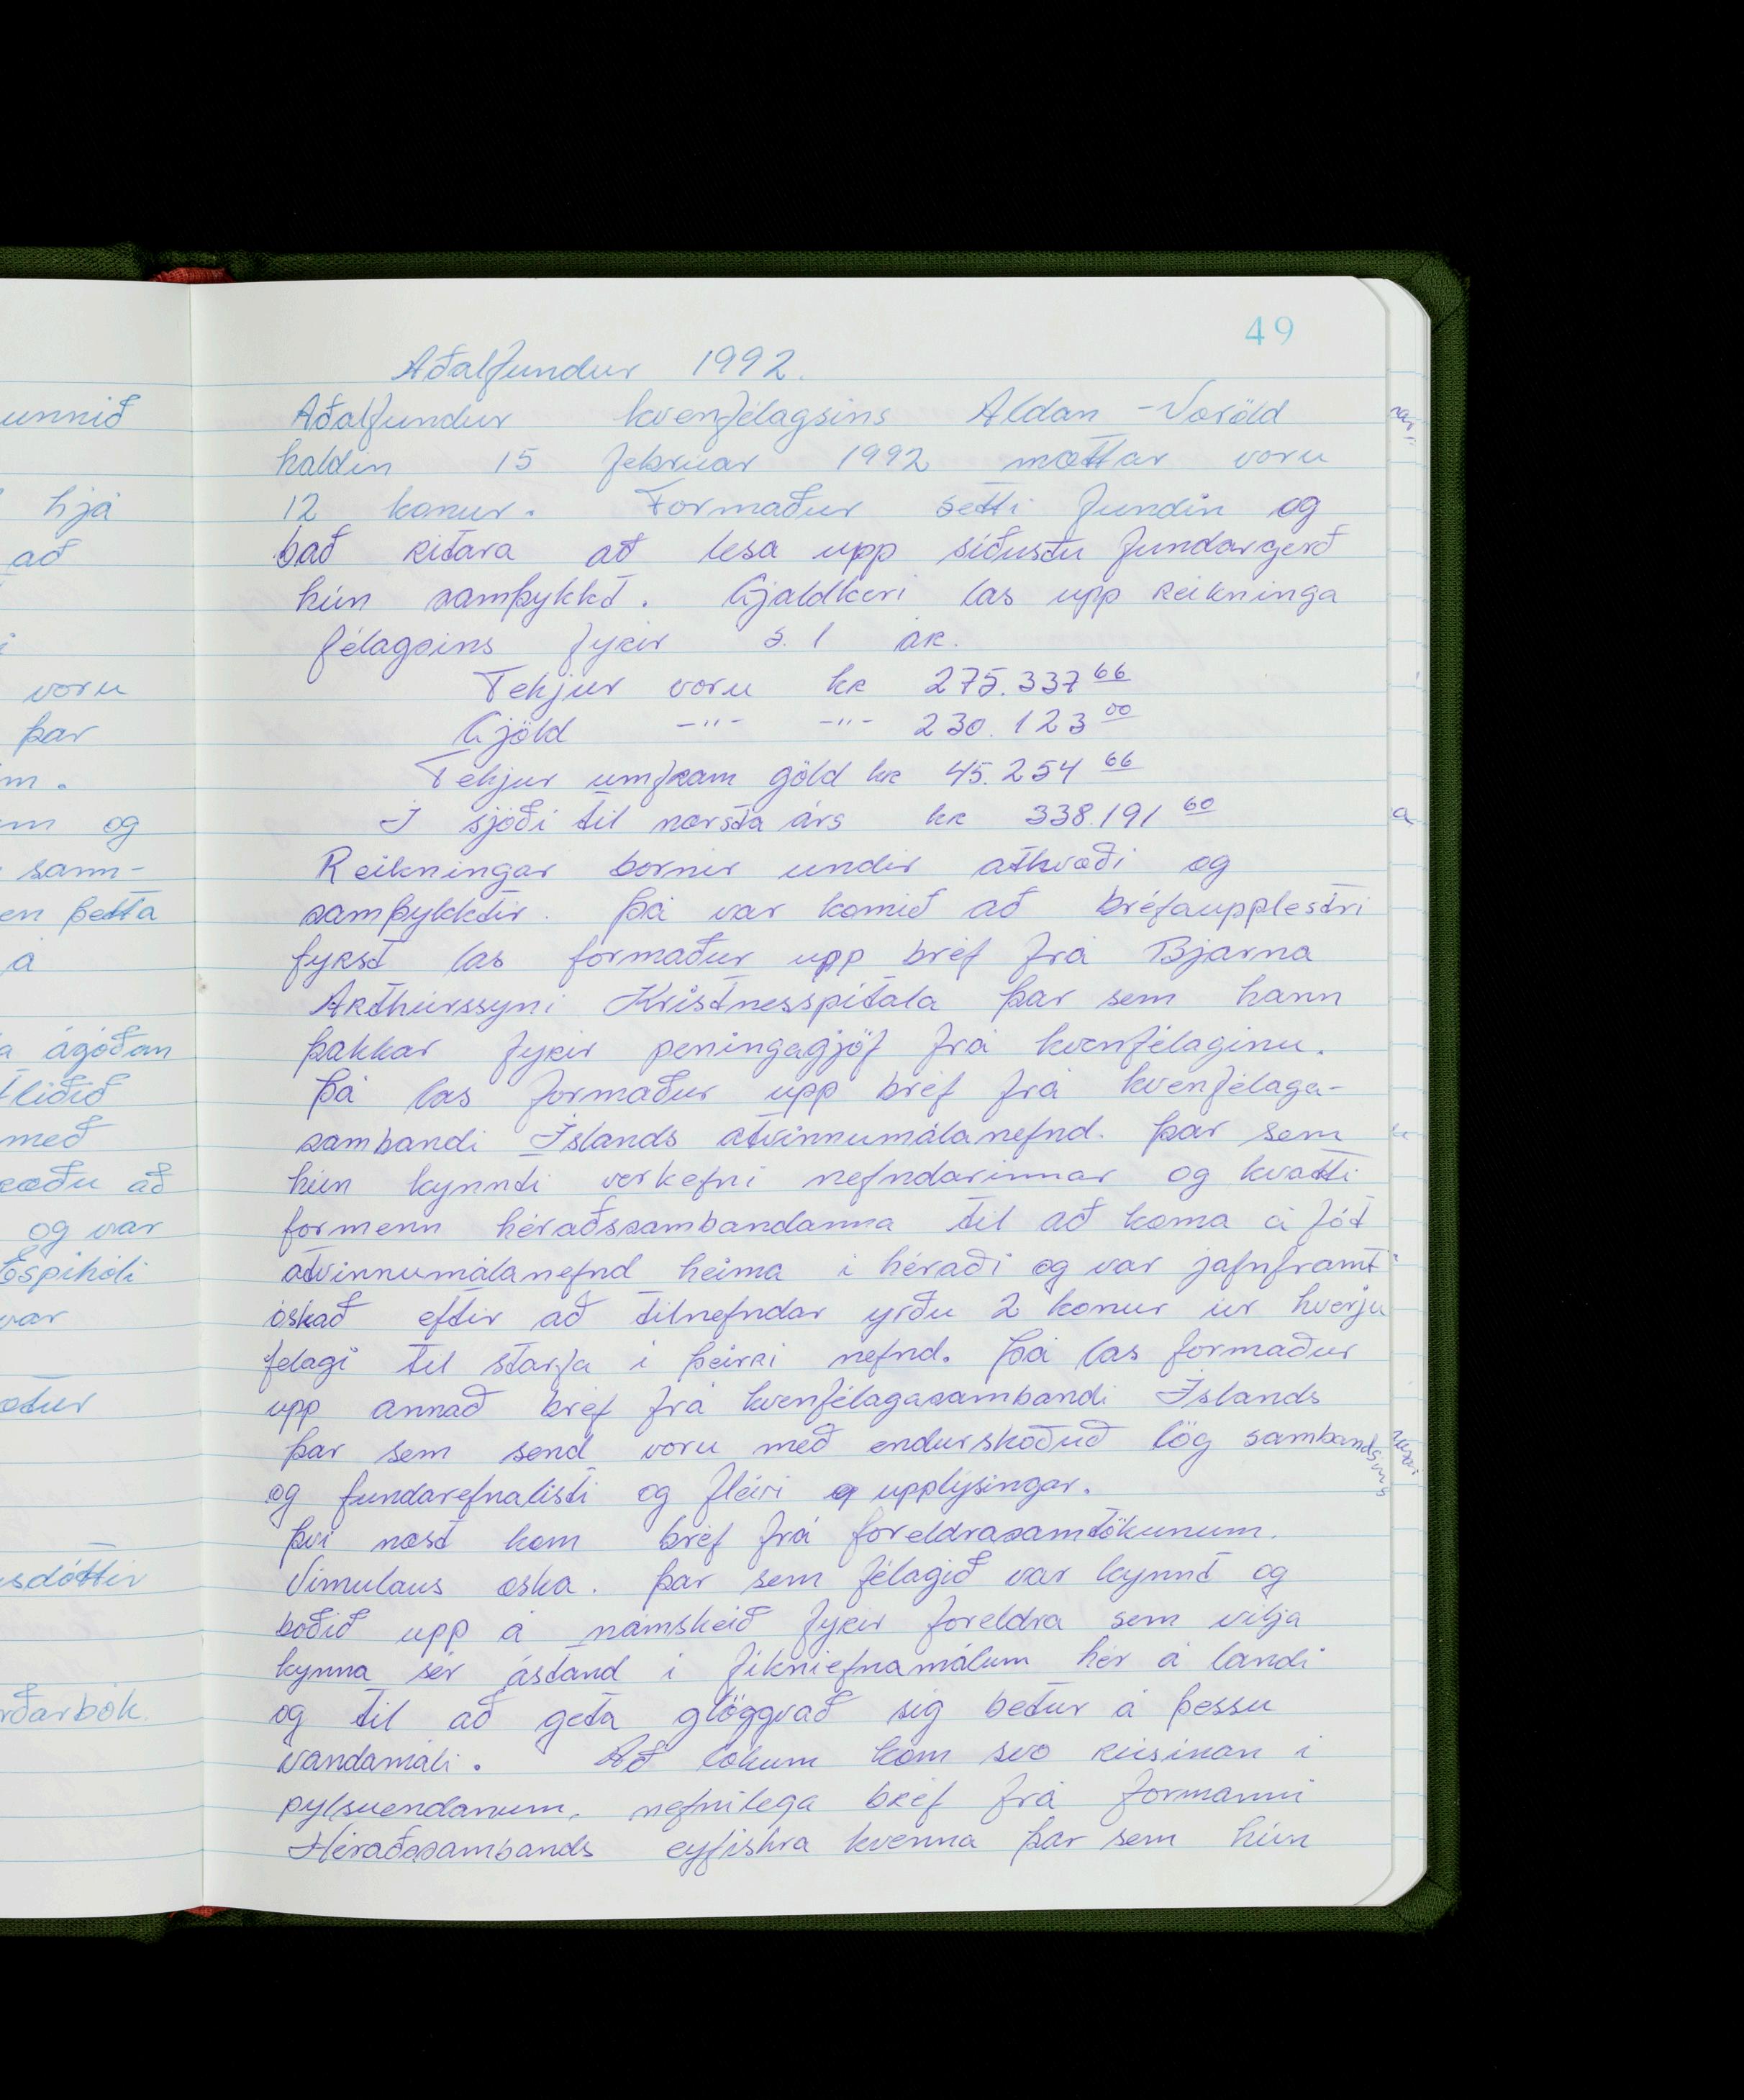 49
Aðalfundur 1992.
Aðalfundur kvenfélagsins Aldan - Voröld
haldin 15 febrúar 1992 mættar voru
12 konur. Formaður setti fundin og
bað ritara að lesa upp síðustu fundargerð
hún samþykkt. Gjaldkeri las upp reikninga
félagsins fyrir s. l ár.
Tekjur voru kr 275.337 66
Gjöld -"- -"- 230.123 00
Tekjur umfram göld kr 45.254 66
Í sjóði til næsta árs kr 338.191 60
Reikningar bornir undir atkvæði og
samþykktir. Þá var komið að bréfaupplestri
fyrst las formaður upp bréf frá Bjarna
Arthúrssyni Kristnesspítala þar sem hann
þakkar fyrir peningagjöf frá kvenfélaginu.
Þá las formaður upp bréf frá kvenfélaga-
sambandi Íslands atvinnumálanefnd. Þar sem
hún kynnti verkefni nefndarinnar og kvatti
formenn héraðssambandanna til að koma á fót
atvinnumálanefnd heima í héraði og var jafnframt
óskað eftir að tilnefndar yrðu 2 konur úr hverju
felagi til starfa í þeirri nefnd. Þá las formaður
upp annað bréf frá kvenfélagasambandi Íslands
þar sem send voru með endurskoðuð lög sambandsins
og fundarefnalisti og fleiri upplýsingar.
Því næst kom bréf frá foreldrasamtökunum.
Vímulaus æska. Þar sem félagið var kynnt og
boðið upp á námskeið fyrir foreldra sem vilja
kynna sér ástand í fíkniefnamálum hér á landi
og til að geta glöggvað sig betur á þessu
vandamáli. Að lokum kom svo rúsínan í
pylsuendanum, nefnilega bréf frá formanni
Héraðssambands eyfiskra kvenna þar sem hún
unnið
hjá
að
voru
þar
og
sann-
en þetta
á
ágóðan
með
að
og var
Espihóli
var